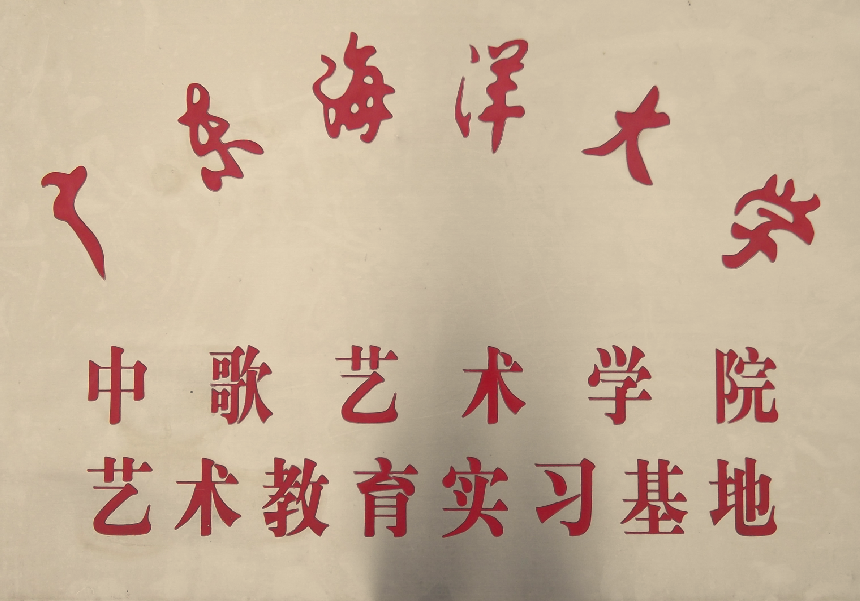 广东海洋大学
中歌艺术学院
艺术教育实习基地